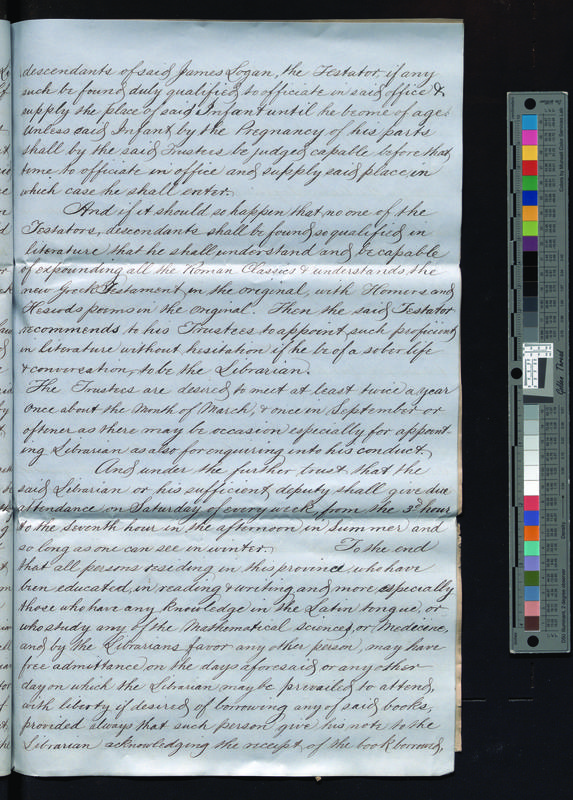 descendants of said James Logan, the Testator, if any
such be found duly qualified to officiate in said office &
supply the place of said Infant until he be come of age.
unless said Infant by the Pregnancy of his parts
shall by the said Trustees be judged capable before that
time to officiate in office and supply said place, in
which case he shall enter.
And if it should so happen that no one of the
Testators, descendants shall be found so qualified in
literature that he shall understand and be capable
of expounding all the Roman Classics & understands the
new Greek Testament, in the original, with Homers and
Hesiods poems in the original. Then the said Testator
recommends to his Trustees to appoint such proficient
in literature without hesitation if he be of a sober life
& conversation, to be the Librarian.
The Trustees are desired to meet at least twice a year
Once about the Month of March, & once in September or
oftener as there may be occasion especially for appoint
ing Librarian as also for enquiring into his conduct.
And under the further trust that the
said Librarian or his sufficient deputy shall give due
attendance on Saturday of every week from the 3d hour
to the seventh hour in the afternoon in Summer and
so long as one can see in winter. To the end
that all persons residing in this province who have
been educated in reading & writing and more especially
those who have any knowledge in the Latin tongue, or
who study any of the Mathematical sciences, or Medicine,
and by the Librarians favor any other person, may have
free admittance on the days aforesaid or any other
day on which the Librarian may be prevailed to attend,
with liberty if desired of borrowing any of said books,
provided always that such person give his note to the
Librarian acknowledging the receipt of the book borrowed,